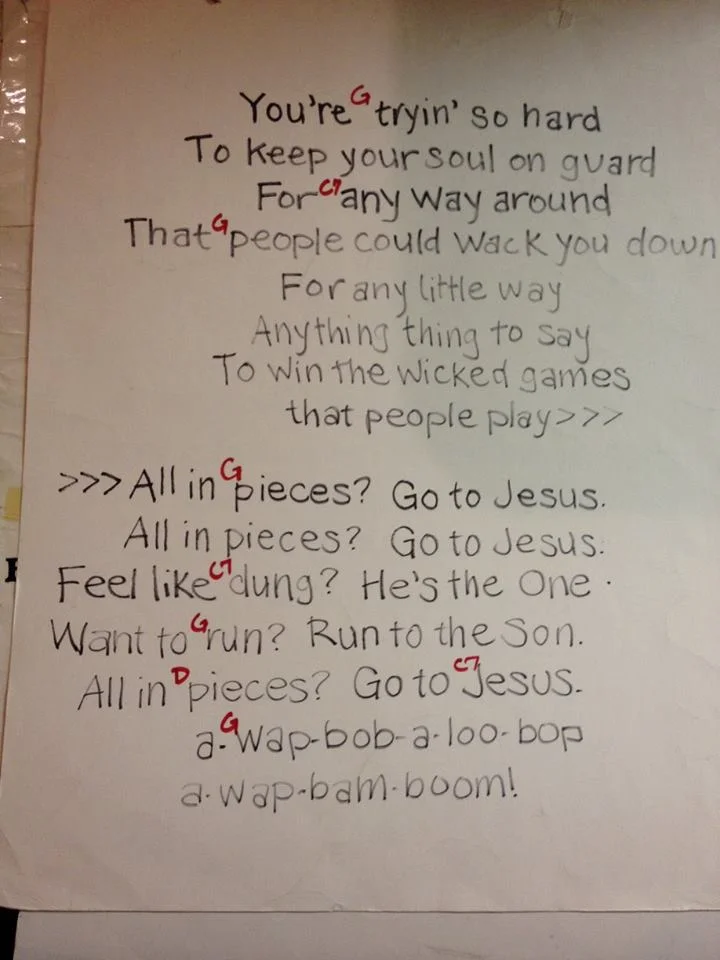 You're G tryin' so hard
To keep your soul on guard
For C7 any way around
That G people could wack you down
For any little way
Anything thing to say
To win the wicked games
that people play>>>
>>> All in G pieces? Go to Jesus.
All in pieces? Go to Jesus.
Feel like C7 dung? He's the One.
Want to G run? Run to the Son.
All in D pieces? Go to C7 Jesus.
a-G wap-bob-a-loo-bop
a-wap-bam-boom!